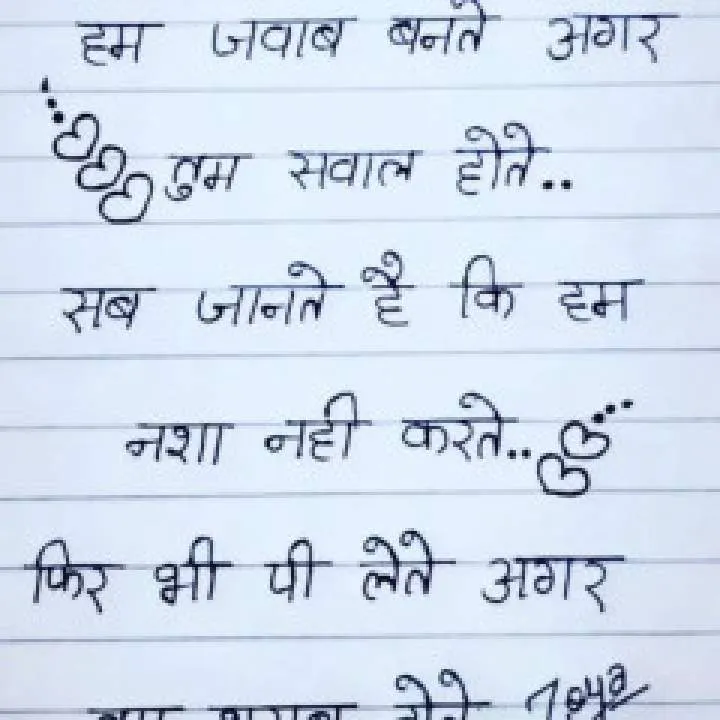 हम जवाब बनते अगर
तुम सवाल होते..
सब जानते है कि हम
नशा नही करते..
फिर भी पी लेते अगर
होते